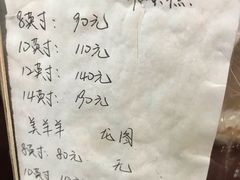 8英寸: 90元
10英寸: 110元
12英寸: 140元
14英寸: 190元
美羊羊 龙图
8英寸: 80元 元
10英寸: